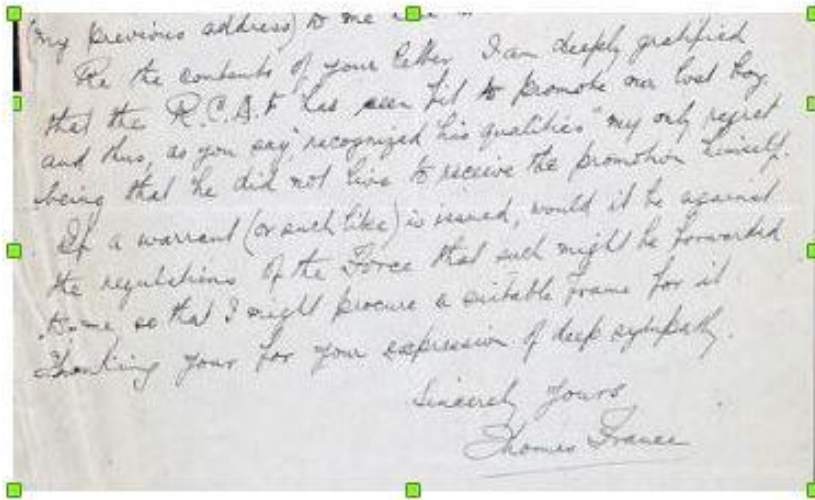 (my previous address) to me
Re the contents of your letter I am deeply gratified
that the R.C.A.F has seen fit to promote our lost boy
and thus, as you say, "recognized his qualities" my only regret
being that he did not live to receive the promotion himself.
If a warrant (or such like) is issued, would it be against
the regulations of the Force that such might be forwarded
to me so that I might procure a suitable frame for it
Thanking your for your expression of deep sympathy.
Sincerely Yours
Thomas France